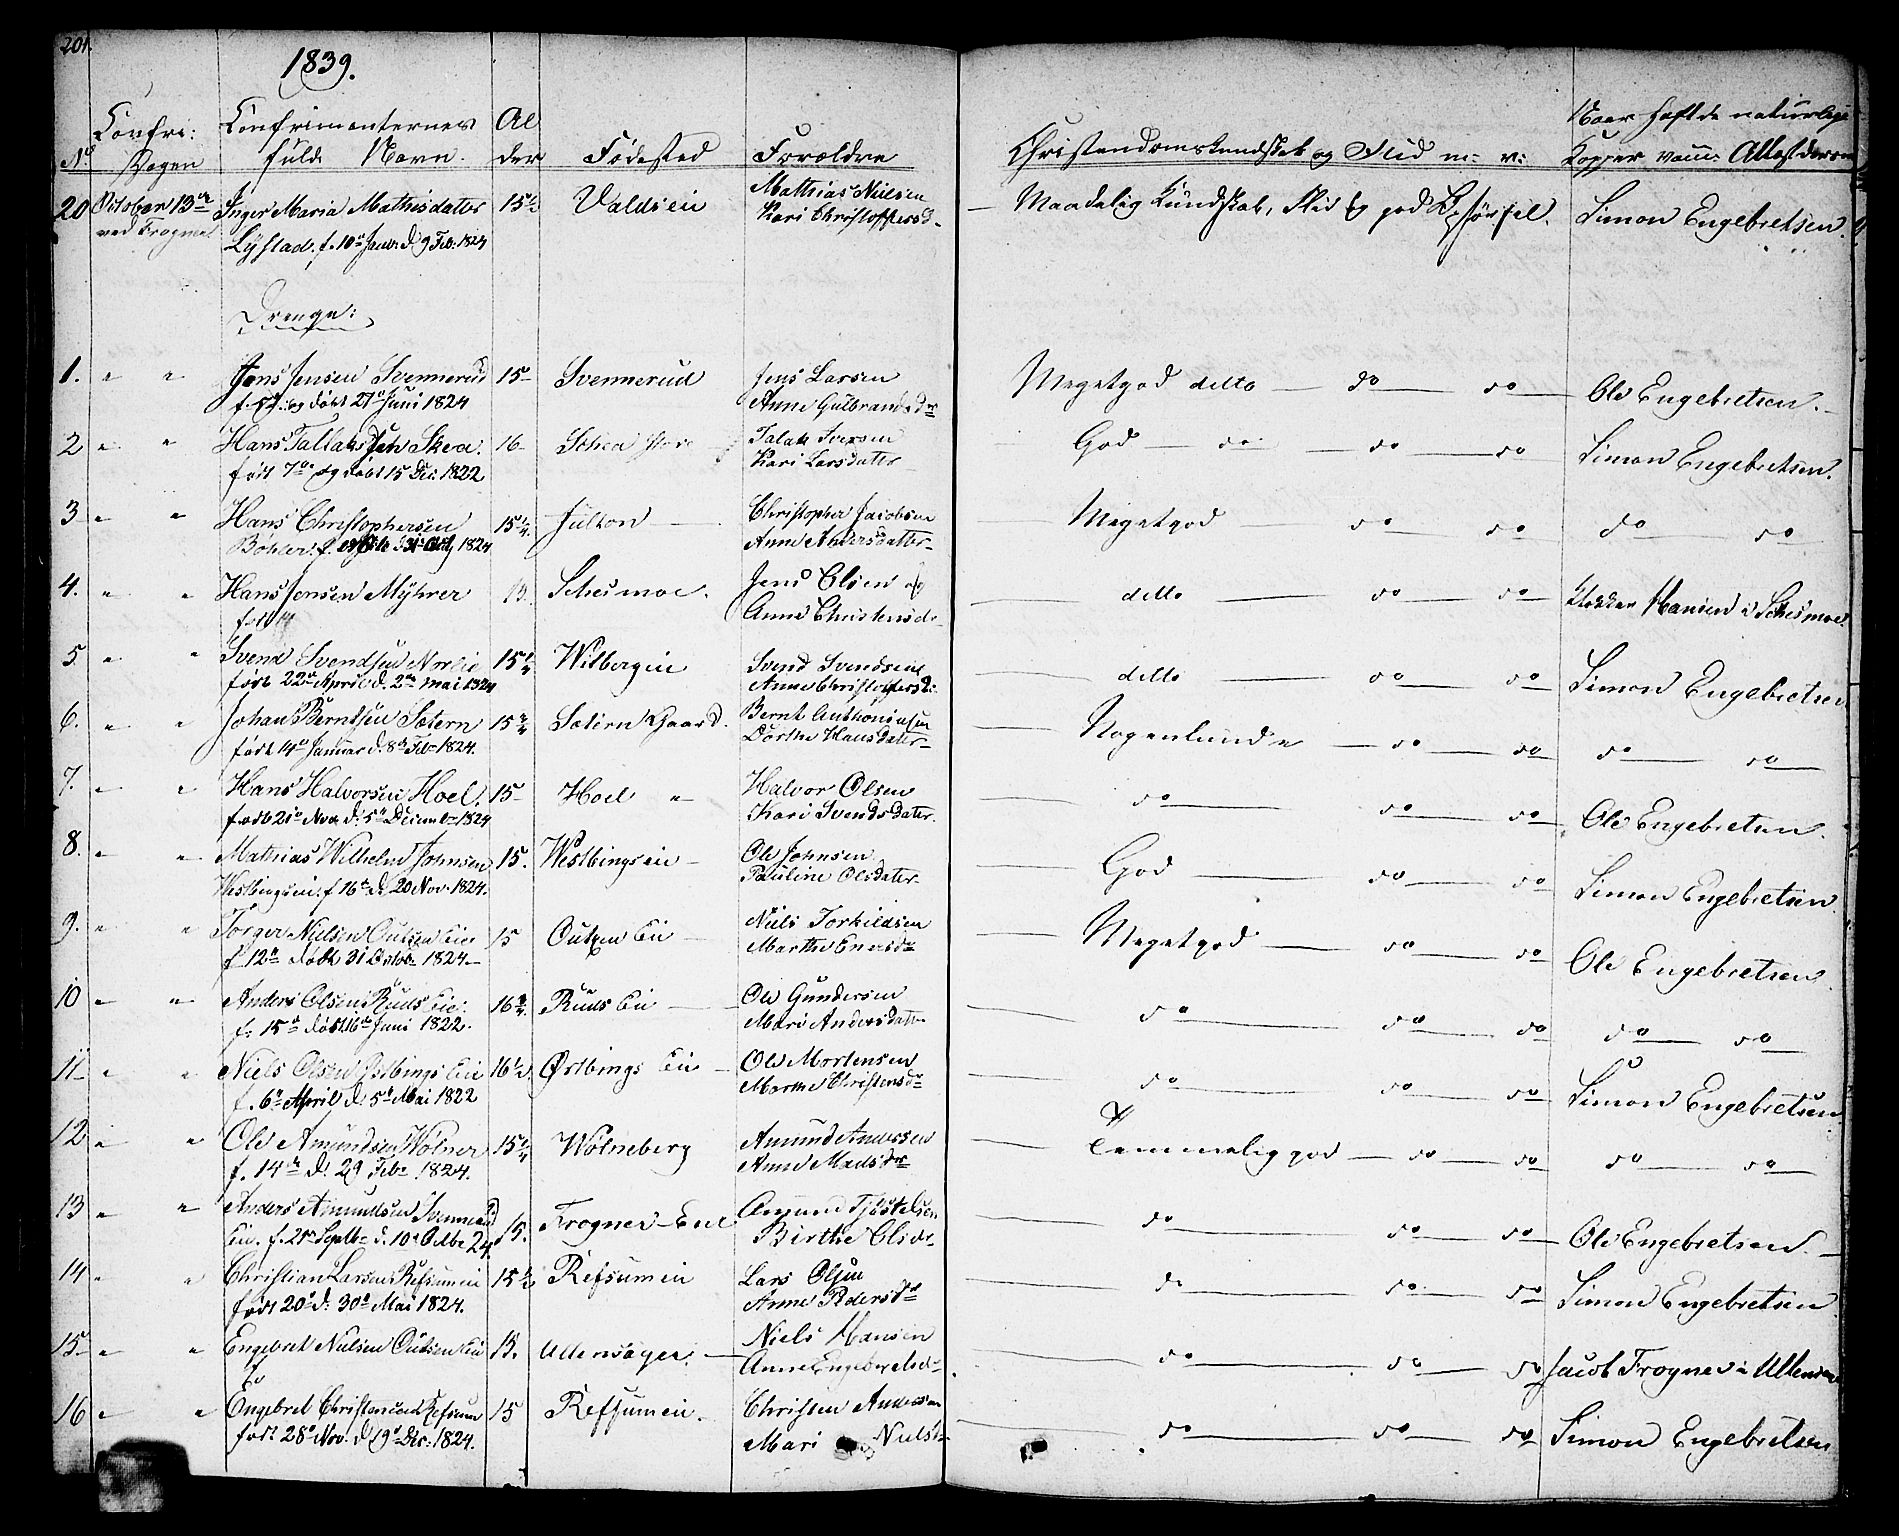 201.
1839.
No Confir: Dagen Confirmanternes fulde Navn. Alder Fødested Forældre Christendomskundskab og Flid m: v: Naar havt de naturlige Kopper Attest derom
20 October 13de Inger Maria Mathisdatter 15½ Valdseie Mathias Nielsen Maadelig Kundskab, Flid og god Opførsel. Simon Engebretsen.
ved Frogner Lystad, f. 10de Januar d. 9 Feb. 1824 Kari Christoffersd.
Drenge:
1. " " Jens Jensen Svennerud 15 Svennerud Jens Larsen Megetgod ditto do do Ole Engebretsen.
f. og døbt 27 Juni 1824 Anne Gulbrandsdr
2 " " Hans Tallaksen Skea. 16 Schea store Talak Iversen God do do do Simon Engebretsen.
født 7de og døbt 15 Dec. 1822 Kari Larsdater
3 " " Hans Christophersen 15¼ Julton Christopher Jacobsen Megetgod do do do do
Bøhler. f. 1824 Anne Andersdatter
4. " " Hans Jensen Myhrer 15. Schesmoe. Jens Olsen og ditto do do Klokker Hansen i Schesmoe.
født Anne Christensd.
5 " " Svend Svendsen Nordlie 15¼ Wilbergeie Svend Svendsen ditto do do Simon Engebretsen
født 22de April d. 2den Mai 1824 Anne Christoffersd.
6. " " Johan Berntsen Sætern 15¾ Sætern Gaard. Bernt Anthoniusen Nogenlunde do do do do
født 14de Januar d. 8de Feb. 1824. Dorthe Hansdater
7. " " Hans Halvorsen Hoel. 15 Hoel " Halvor Olsen do do do Ole Engebretsen.
født 21de Nov. d. 5te December 1824 Kari Svendsdater.
8. " " Mathias Wilhelm Johnsen 15. Westbingseie Ole Johnsen God do do Simon Engebretsen.
Westbingseie. f. 16de d. 20 Nov. 1824. Pauline Olsdater
9. " " Torger Nielsen Outzen Eie 15 Outzen Eie Niels Torkildsen Megetgod do do Ole Engebretsen.
f. 12te døbt 31 Octob. 1824. Marthe
10 " " Anders Olsen Ruds Eie. 16¾ Ruds Eie Ole Gundersen do do do do do
f. 15de døbt 16de Juni 1822. Mari Andersdatter
11 " " Niels Olsen Østbings Eie 16½ Østbings Eie Ole Mortensen do do do Simon Engebretsen.
f. 6te April d. 5te Mai 1822 Marthe Christensdr
12 " " Ole Amundsen Wølner 15¼ Wølneberg Amund Andersen Temmelig god do do do do
f. 14de d. 29 Feb. 1824. Anne Madsdr
13 " " Anders Amundsen Svennerud 15. Frogner Eie Amund Tjøstelsen do do do Ole Engebretsen.
Eie. f. 25de Septbr d. 10de Octbr 24. Birthe Olsdr.
14 " " Christian Larsen Refsumeie 15½ Refsumeie Lars Olsen do do do Simon Engebretsen.
født 20de d. 30de Mai 1824. Anne Pedersdr
15 " " Engebret Nielsen Outsen Eie 15. Ullensager. Niels Hansen do do do Jacob Frogner i Ullensaker
f Anne Engebretsdr
16 " " Engebret Christensen Refsum 15 Refsumeie. Christen Andersen do do do Simon Engebretsen
født 28de Nov. d. 19de Dec. 1824. Mari Nielsd.